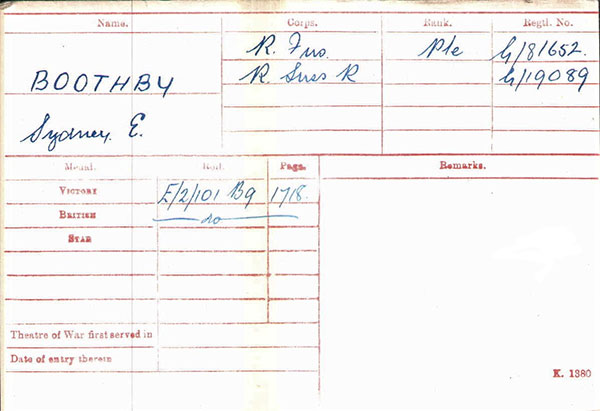 Name. Corps. Rank. Regtl. No.
BOOTHBY R. Fus. Pte G/81652.
R. Suss R G/19089
Sydney. E.
Medal. Roll. Page. Remarks.
VICTORY E/2/101 B9 1718.
BRITISH do
STAR
Theatre of War first served in
Date of entry therein
K. 1380